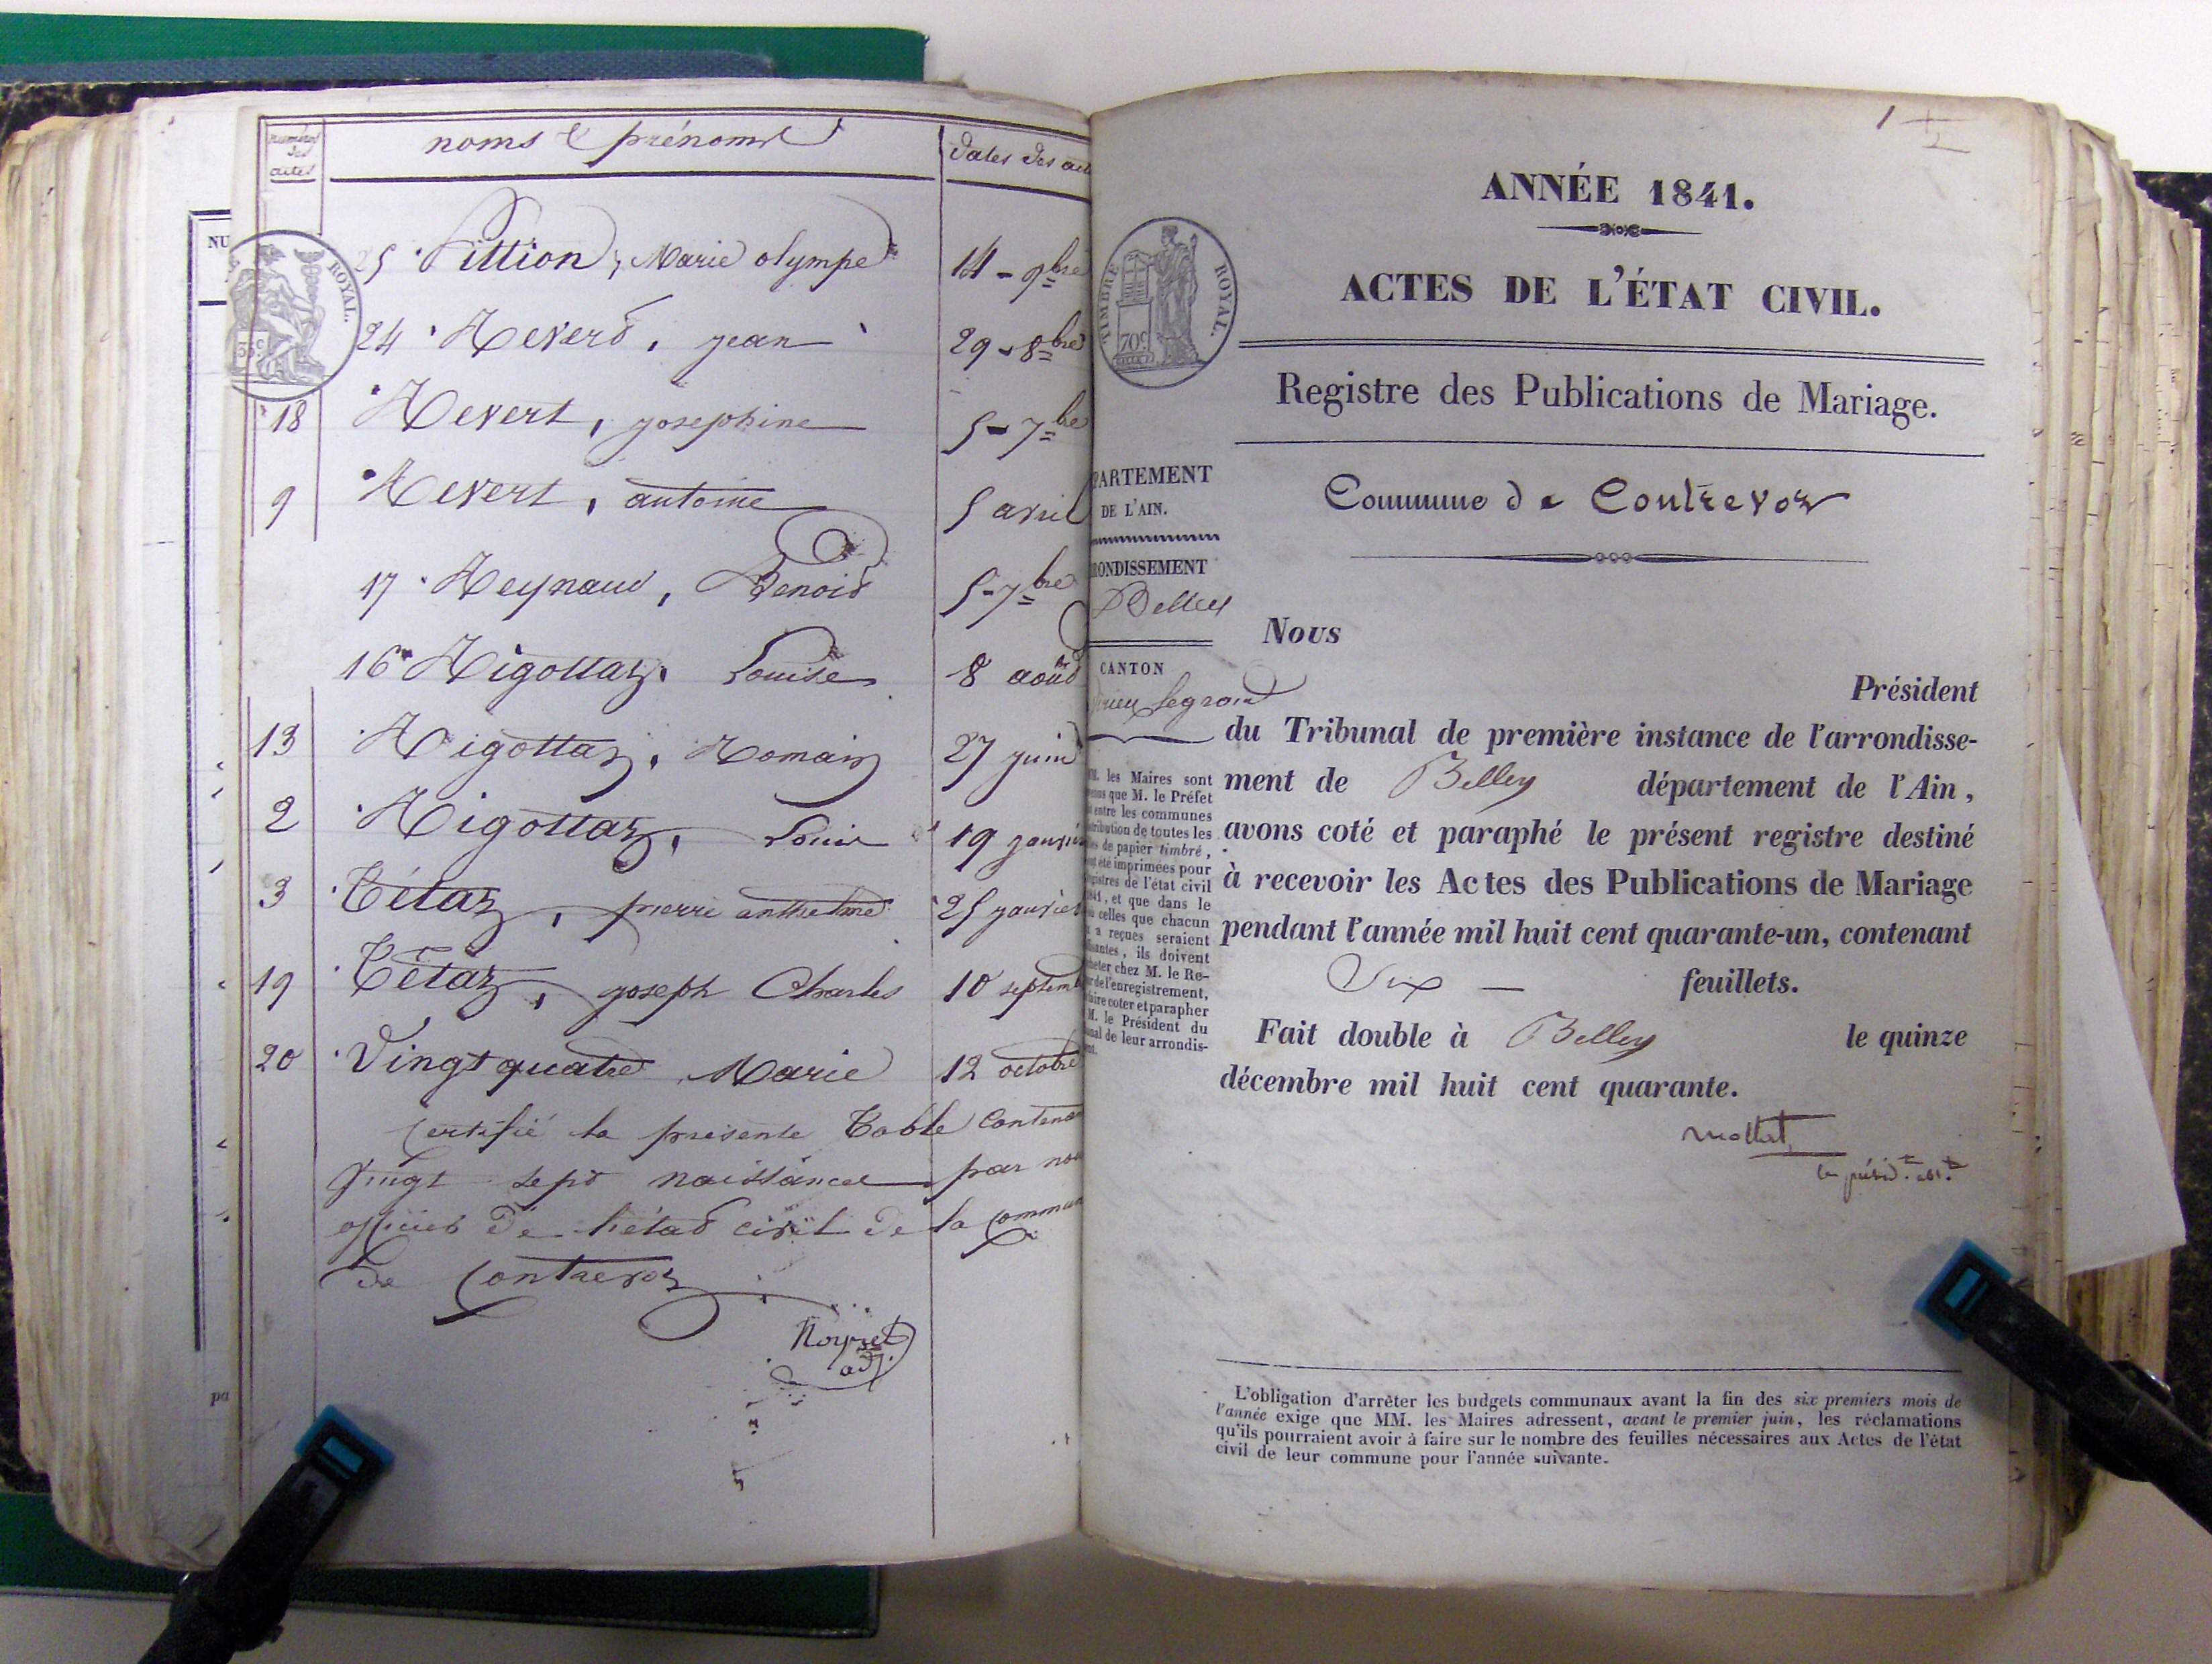 numéros des actes
noms & prénoms
dates des act
NU
ROYAL.
35c
25 Pittion, Marie olympe 14 - 9bre
24 Revert, jean 29 - 8bre
18 Revert, josephine 5 - 7bre
9 Revert, antoine 5 avril
17 Reynaud, Benoit 5 - 7bre
16 Rigottaz, Louise 8 août
13 Rigottaz, Romain 27 juin
2 Rigottaz, Louis 19 janvier
3 Tétaz, pierre anthelme 25 janvier
19 Tétaz, joseph Charles 10 septemb
20 Vingt quatre Marie 12 octobre
Certifié la presente Table Contenan
vingt sept naissances par nou
officier de l'état civil de la Commun
de Contrevoz
adj.
pa
1
ANNÉE 1841.
ACTES DE L'ÉTAT CIVIL.
TIMBRE ROYAL.
70c
Registre des Publications de Mariage.
PARTEMENT
DE L'AIN.
Commune de Contrevoz
RONDISSEMENT
Belley
CANTON
rieu legrand
Nous
Président
du Tribunal de première instance de l'arrondisse-
ment de Belley département de l'Ain,
avons coté et paraphé le présent registre destiné
à recevoir les Actes des Publications de Mariage
pendant l'année mil huit cent quarante-un, contenant
Six — feuillets.
Fait double à Belley le quinze
décembre mil huit cent quarante.
M. les Maires sont
que M. le Préfet
entre les communes
tribution de toutes les
de papier timbré,
été imprimées pour
gistres de l'état civil
1841, et que dans le
celles que chacun
a reçues seraient
santes, ils doivent
heter chez M. le Re-
de l'enregistrement,
faire coter et parapher
M. le Président du
nal de leur arrondis-
L'obligation d'arrêter les budgets communaux avant la fin des six premiers mois de
l'année exige que MM. les Maires adressent, avant le premier juin, les réclamations
qu'ils pourraient avoir à faire sur le nombre des feuilles nécessaires aux Actes de l'état
civil de leur commune pour l'année suivante.